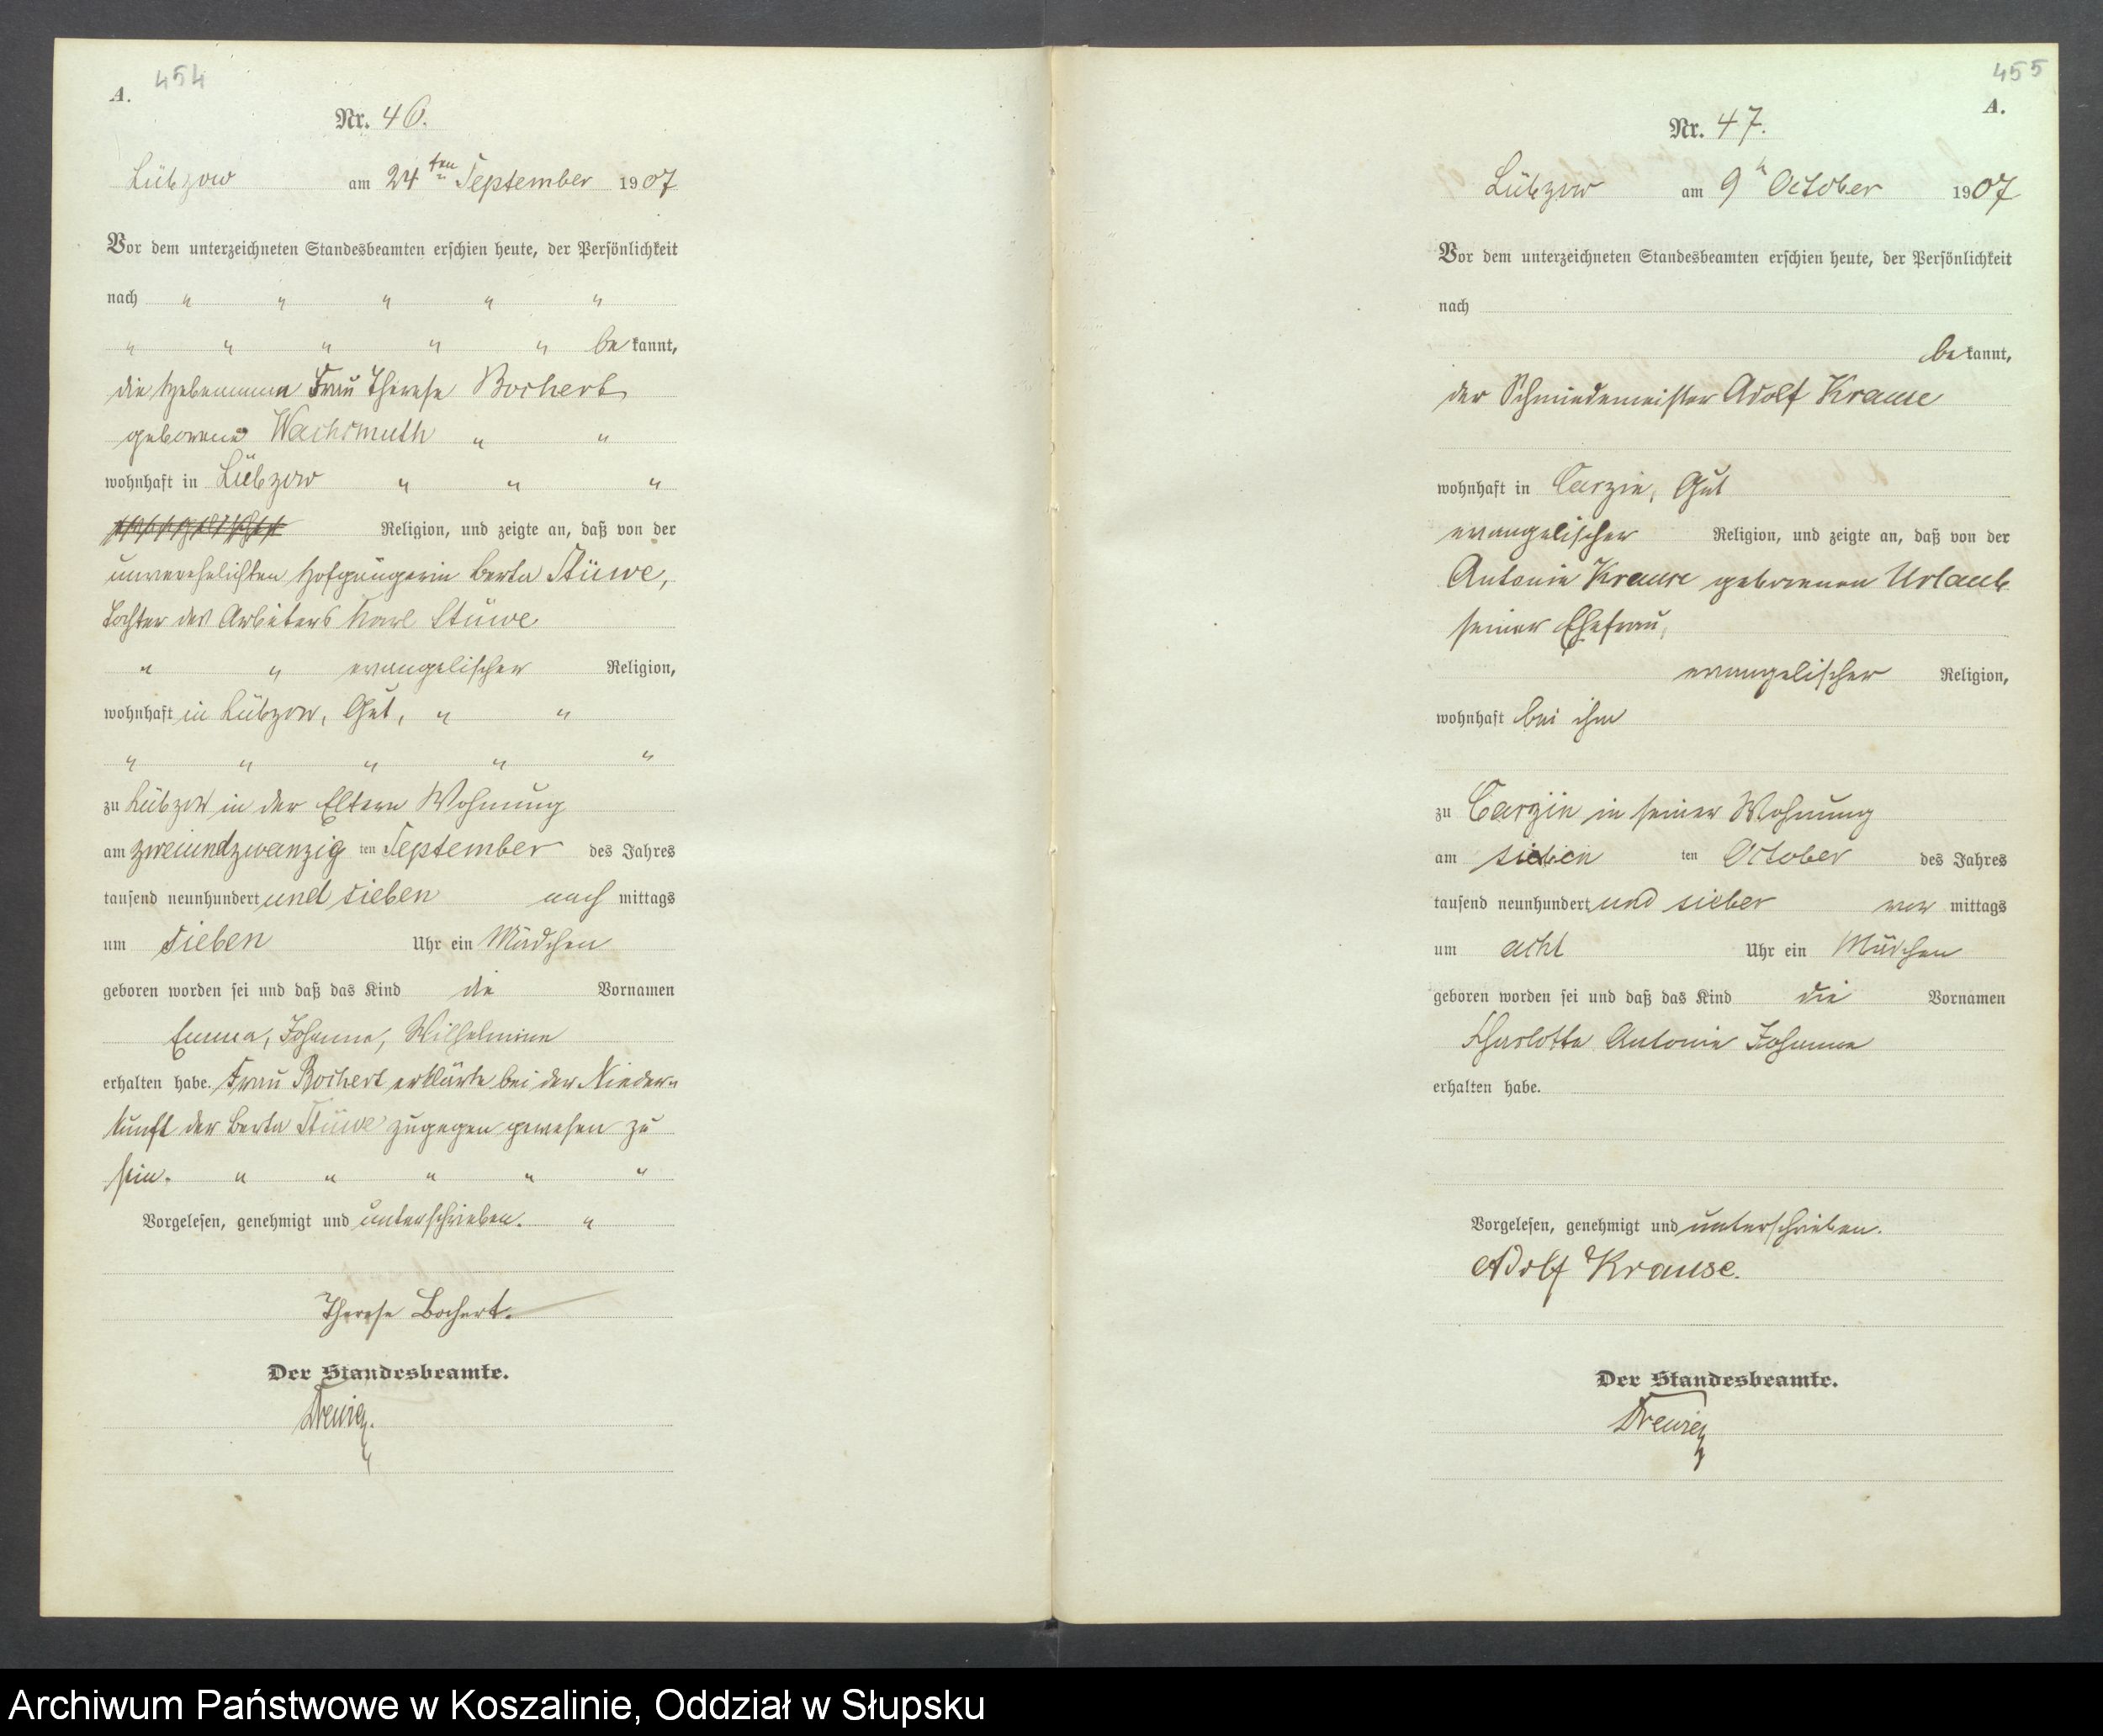 454
A.
Nr. 46.
Lübzow am 24ten September 1907
Vor dem unterzeichneten Standesbeamten erschien heute, der Persönlichkeit
nach " " " " "
" " " " " bekannt,
die Hebamme Frau Therese Bochert
geborene Wachsmuth " "
wohnhaft in Lübzow " " "
Religion, und zeigte an, daß von der
unverehelichten Hofgängerin Berta Stüwe,
Tochter des Arbeiters Karl Stüwe
" " evangelischer Religion,
wohnhaft in Lübzow, Gut, " "
" " " " "
zu Lübzow in der Eltern Wohnung
am zweiundzwanzig ten September des Jahres
tausend neunhundert und sieben nach mittags
um sieben Uhr ein Mädchen
geboren worden sei und daß das Kind die Vornamen
Emma, Johanna, Wilhelmine
erhalten habe. Frau Bochert erklärte bei der Nieder-
kunft der Berta Stüwe zugegen gewesen zu
sein. " " " " "
Vorgelesen, genehmigt und unterschrieben. "
Therese Bochert.
Der Standesbeamte.
Drewig.
455
A.
Nr. 47.
Lübzow am 9 October 1907
Vor dem unterzeichneten Standesbeamten erschien heute, der Persönlichkeit
nach
bekannt,
der Schmiedemeister Adolf Krause
wohnhaft in Carzin, Gut
evangelischer Religion, und zeigte an, daß von der
Antonie Krause geborenen Urlaub
seiner Ehefrau,
evangelischer Religion,
wohnhaft bei ihm
zu Carzin in seiner Wohnung
am sieben ten October des Jahres
tausend neunhundert und sieben vor mittags
um acht Uhr ein Mädchen
geboren worden sei und daß das Kind die Vornamen
Charlotte Antonie Johanna
erhalten habe.
Vorgelesen, genehmigt und unterschrieben.
Adolf Krause.
Der Standesbeamte.
Drewig
Archiwum Państwowe w Koszalinie, Oddział w Słupsku